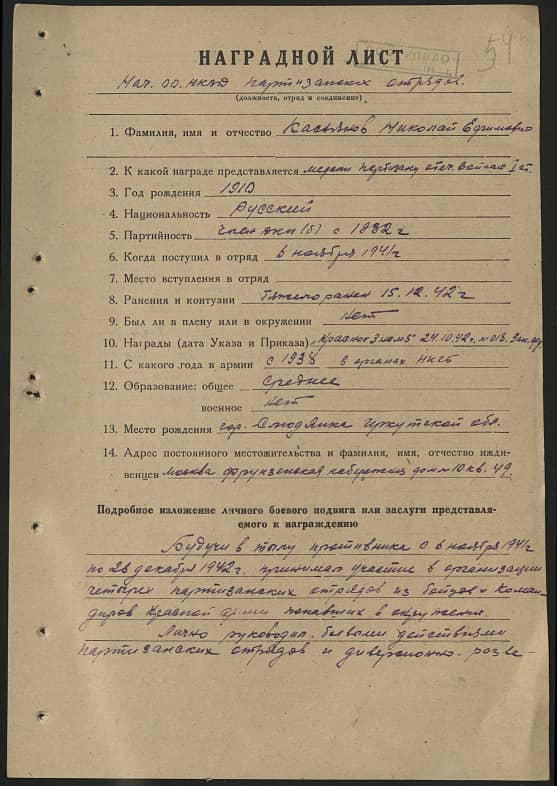 54
НАГРАДНОЙ ЛИСТ
Нач. оо. НКВД партизанских отрядов.
(должность, отряд и соединение)
1. Фамилия, имя и отчество Касьянов Николай Ефимович
2. К какой награде представляется медали партизану отеч. войны I ст.
3. Год рождения 1910
4. Национальность Русский
5. Партийность член ВКП(б) с 1932 г
6. Когда поступил в отряд 6 ноября 1941 г
7. Место вступления в отряд
8. Ранения и контузии Тяжело ранен 15.12.42 г
9. Был ли в плену или в окружении Нет
10. Награды (дата Указа и Приказа) Красное Знамя 24.10.42 г. № 018. Зап. фр.
11. С какого года в армии с 1938 в органах НКГБ
12. Образование: общее среднее
военное Нет
13. Место рождения гор. Слюдянка Иркутской обл.
14. Адрес постоянного местожительства и фамилия, имя, отчество ижди-
венцев Москва Фрунзенская набережная дом № 10 кв. 49.
Подробное изложение личного боевого подвига или заслуги представля-
емого к награждению
Будучи в тылу противника с 6 ноября 1941 г
по 28 декабря 1942 г. принимал участие в организации
четырех партизанских отрядов из бойцов и коман-
диров Красной Армии попавших в окружении.
Лично руководил боевыми действиями
партизанских отрядов и диверсионно-разве-